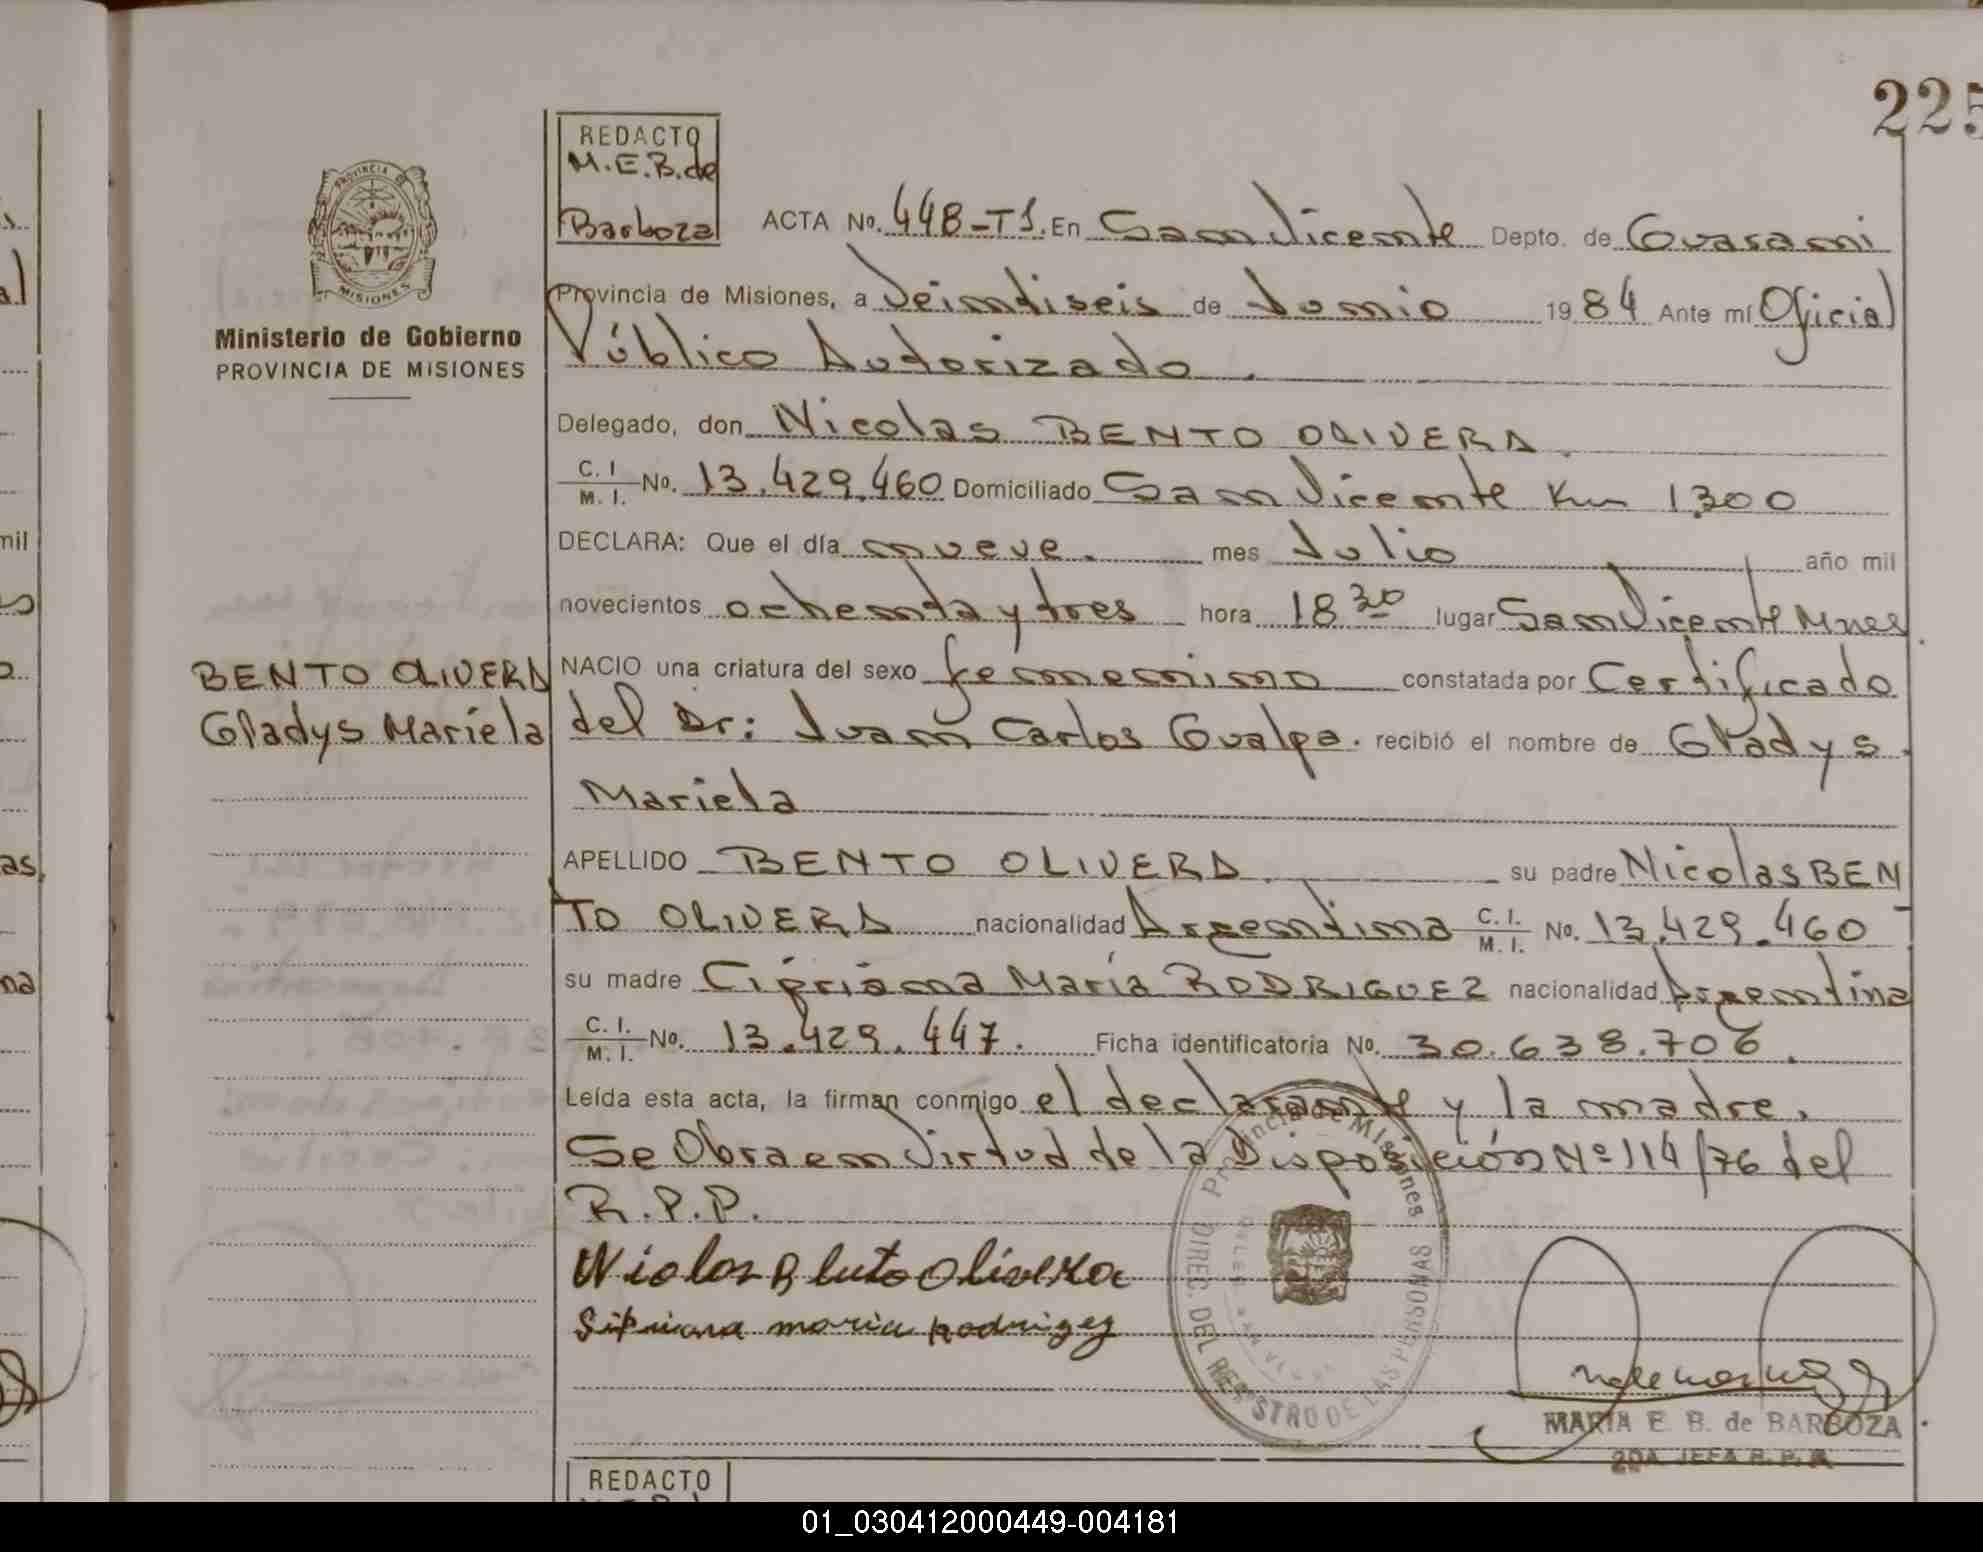 225
REDACTO
M.E.B. de
Barboza
PROVINCIA DE
MISIONES
Ministerio de Gobierno
PROVINCIA DE MISIONES
ACTA No. 448-T1. En San Vicente Depto. de Guarani
Provincia de Misiones, a Veintiseis de Junio 1984 Ante mí Oficial
Público Autorizado.
Delegado, don Nicolas BENTO OLIVERA.
C. I. / M. I. No. 13.429.460 Domiciliado San Vicente Km 1.300
DECLARA: Que el día nueve. mes Julio año mil
novecientos ochenta y tres hora 18 30 lugar San Vicente Mnes.
BENTO OLIVERA
Gladys Mariela
NACIO una criatura del sexo femenino constatada por Certificado
del Dr: Juan Carlos Gualpa. recibió el nombre de Gladys
Mariela
APELLIDO BENTO OLIVERA. su padre Nicolas BEN
TO OLIVERA nacionalidad Argentina C. I. / M. I. No. 13.429.460
su madre Cipriana María RODRIGUEZ nacionalidad Argentina
C. I. / M. I. No. 13.429.447. Ficha identificatoria No. 30.638.706.
Leída esta acta, la firman conmigo el declarante y la madre.
Se Obra en Virtud de la Disposición Nº 114/76 del
R.P.P.
Provincia de Misiones
DIREC. DEL REGISTRO DE LAS PERSONAS
MARIA E. B. de BARBOZA
2DA JEFA R. P. P.
REDACTO
01_030412000449-004181